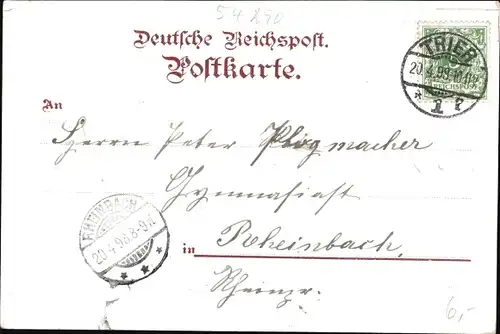 54290
Deutsche Reichspost.
Postkarte.
TRIER
20.4.99.10-11V.
* 1 r
REICHSPOST
An
Herrn Peter Plögmacher
Gymnasiast
in Rheinbach,
Rheinpr.
RHEINBACH
20.4.99.8-9N.
* * *
6,-